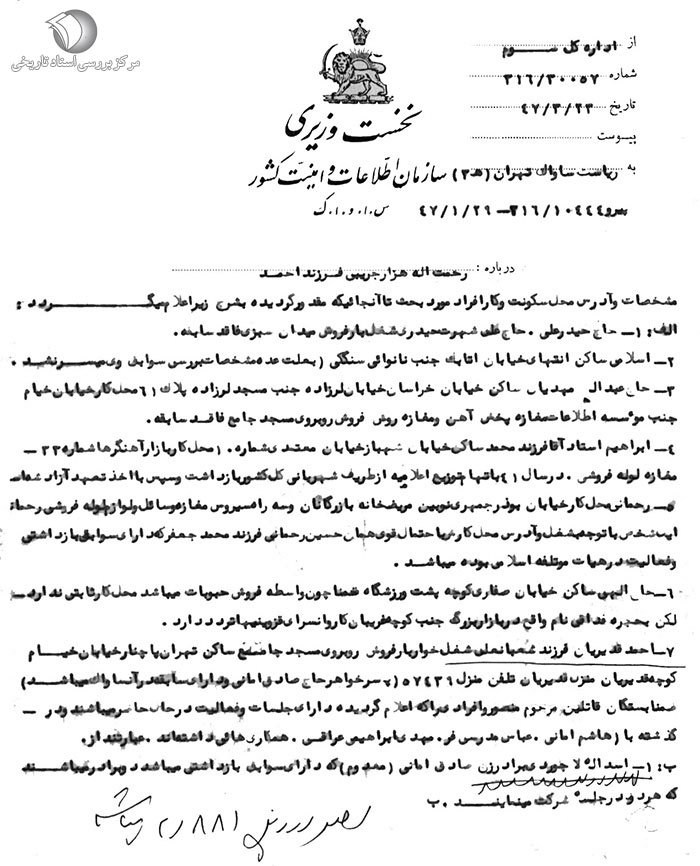 مرکز بررسی اسناد تاریخی
از اداره کل سوم
شماره ۳۱۶/۳۰۰۵۷
تاریخ ۴۷/۳/۲۳
پیوست
نخست وزیری
به ریاست ساواک تهران (ه‍ ۳) سازمان اطلاعات و امنیت کشور
پیرو ۳۱۶/۱۰۴۴۴ – ۴۷/۱/۲۹ س.ا.و.ا.ک
درباره : رحمت اله هزارجریبی فرزند احمد
مشخصات و آدرس محل سکونت و کار افراد مورد بحث تا آنجائیکه مقدور گردیده بشرح زیر اعلام میگردد :
الف: ۱- حاج حیدرعلی . حاج علی شهرت حیدری شغل بارفروش میدان سبزی فاقد سابقه .
۲- اسلامی ساکن انتهای خیابان اتابک جنب نانوائی سنگکی (بعلت عدم مشخصات بررسی سوابق وی میسر نشد .
۳- حاج عبداله مهدیان ساکن خیابان خراسان خیابان لرزاده جنب مسجد لرزاده پلاک ۶۱ محل کار خیابان خیام
جنب موئسسه اطلاعات مغازه پخش آهن و مغازه روش فروش روبروی مسجد جامع فاقد سابقه .
۴- ابراهیم استاد آقا فرزند محمد ساکن خیابان شهباز خیابان معتمدی شماره ۱۰ محل کار بازار آهنگرها شماره ۳۳ -
مغازه لوله فروشی . در سال ۴۱ باتهام توزیع اعلامیه از طریف شهربانی کل کشور بازداشت وسپس با اخذ تعهد آزاد شده است
۵- رحمانی محل کار خیابان بوذرجمهری نوبین مریضخانه بازرگانان وسه راه سیروس مغازه وسائل ولوازم لوله فروشی رحمانی
این شخص با توجه بشغل و آدرس محل کار با احتمال قوی همان حسین رحمانی فرزند محمد جعفر که دارای سوابق بازداشتی
وفعالیت در هیات موتلفه اسلامی بوده میباشد .
۶- حاج الهی ساکن خیابان صفاری کوچه پشت ورزشگاه ضمنا چون واسطه فروش حبوبات میباشد محل کار ثابتی ندارد -
لکن بحجره فدائی نام واقع در بازار بزرگ جنب کوچه غریبان کاروانسرای قزوینیها تردد دارد .
۷- احمد قدیریان فرزند شعبانعلی شغل خواربار فروش روبروی مسجد جامع ساکن تهران پاچنار خیابان خیام
کوچه قدیریان منزل قدیریان تلفن منزل ۵۷۴۳۹ (پسر خواهر حاج صادق امانی ودارای سابقه در آنساواک میباشد)
ضمنا بستگان قاتلین مرحوم منصور و افرادیراکه اعلام گردیده دارای جلسات وفعالیت در حال حاضر میباشند ودر -
گذشته با (هاشم امانی . عباس مدرسی فر . مهدی ابراهیمی عراقی . همکاریهائی داشته‌اند . عبارتند از .
ب: ۱- اسداله لاجوردی برادر زن صادق امانی (معدوم) که دارای سوابق بازداشتی میباشد و برادر میباشند
که هر دو در جلسه شرکت مینمایند . ب
۸۸۱